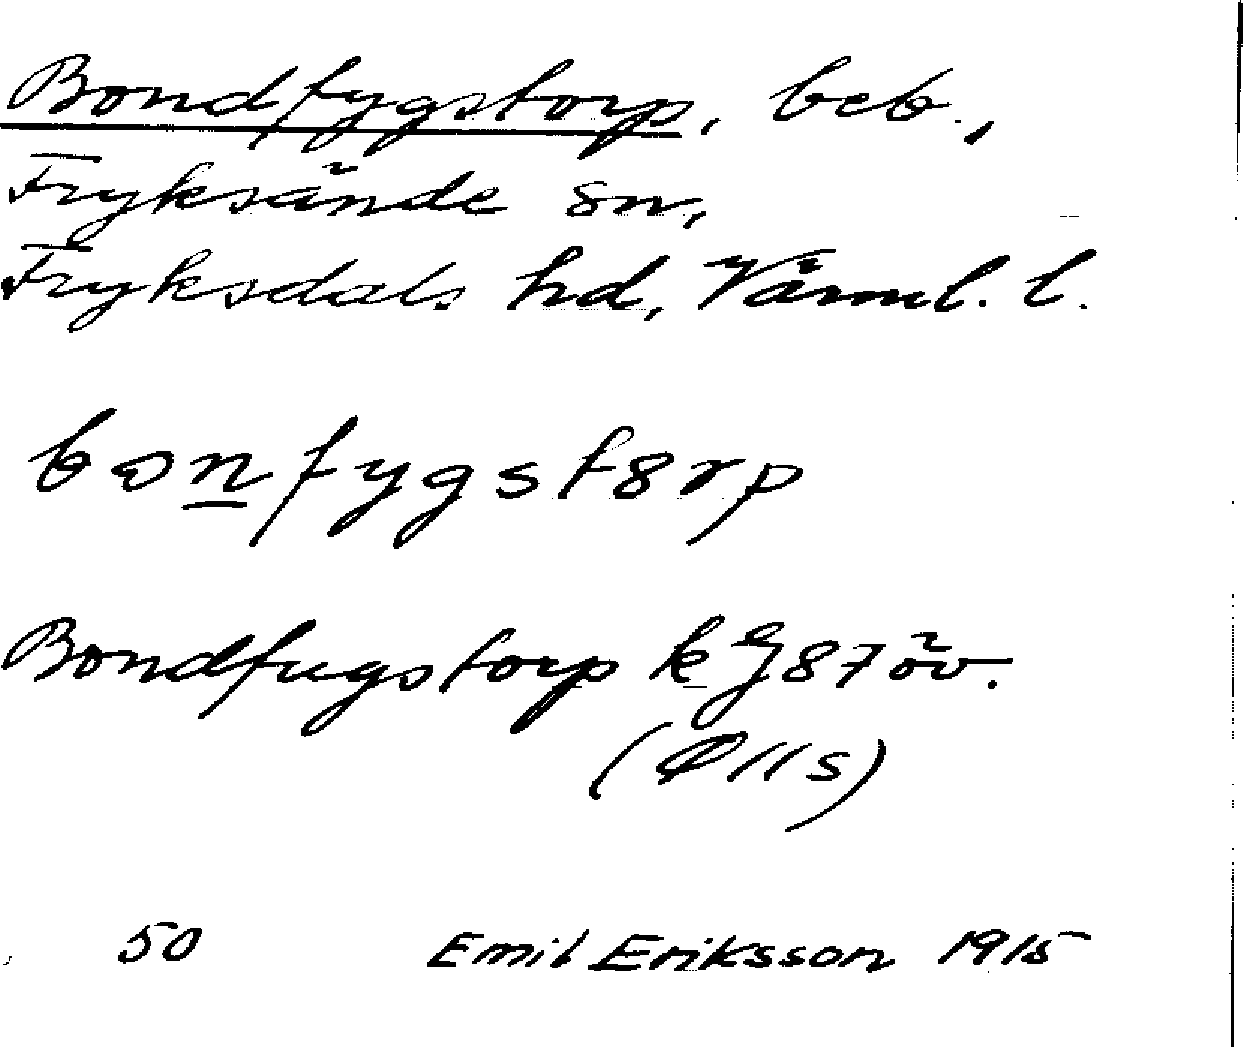 Bondfygstorp, beb.,
Fryksände sn,
Fryksdals hd, Värml. l.
bɔnfygstȣrp
Bondfugstorp k J87 öv.
50 Emil Eriksson 1915